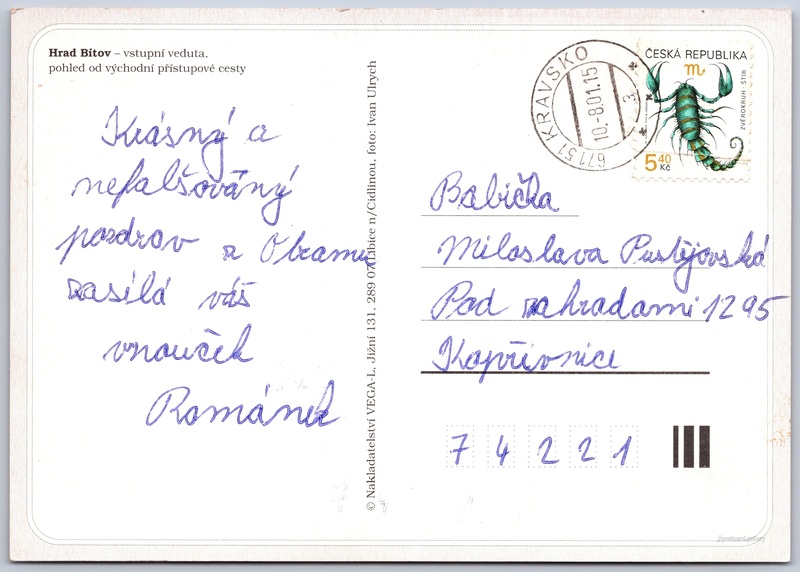 Hrad Bítov – vstupní veduta,
pohled od východní přístupové cesty
Krásný a
nefalšováný
pozdrav z Obramu
zasílá váš
vnouček
Románek
© Nakladatelství VEGA-L, Jižní 131, 289 07 Libice n/Cidlinou, foto: Ivan Ulrych
67151 KRAVSKO
10.-8.01.15
3
ČESKÁ REPUBLIKA
ZVĚROKRUH - ŠTÍR
5,40
Kč
Babička
Miloslava Pustějovská
Pod zahradami 1295
Kopřivnice
74221